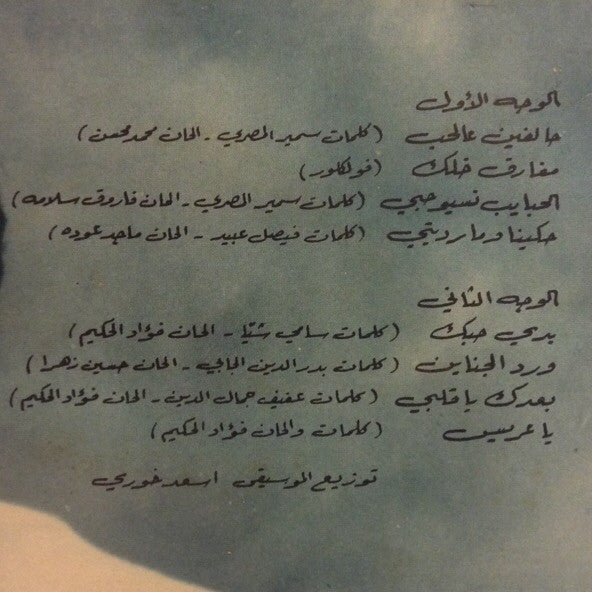 الوجه الأول
حالفين عالحب (كلمات سمير المصري - الحان محمد محسن)
مفارق خلك (فولكلور)
الحبايب نسيو حبي (كلمات سمير المصري - الحان فاروق سلامه)
حكينا وما رديتي (كلمات فيصل عبيد - الحان ماجد عوده)
الوجه الثاني
بدي حبك (كلمات سامي شتيّا - الحان فؤاد الحكيم)
ورد الجناين (كلمات بدر الدين الحاجي - الحان حسين زهرا)
بعدك يا قلبي (كلمات عفيف جمال الدين - الحان فؤاد الحكيم)
يا عريس (كلمات والحان فؤاد الحكيم)
توزيع الموسيقى اسعد خوري